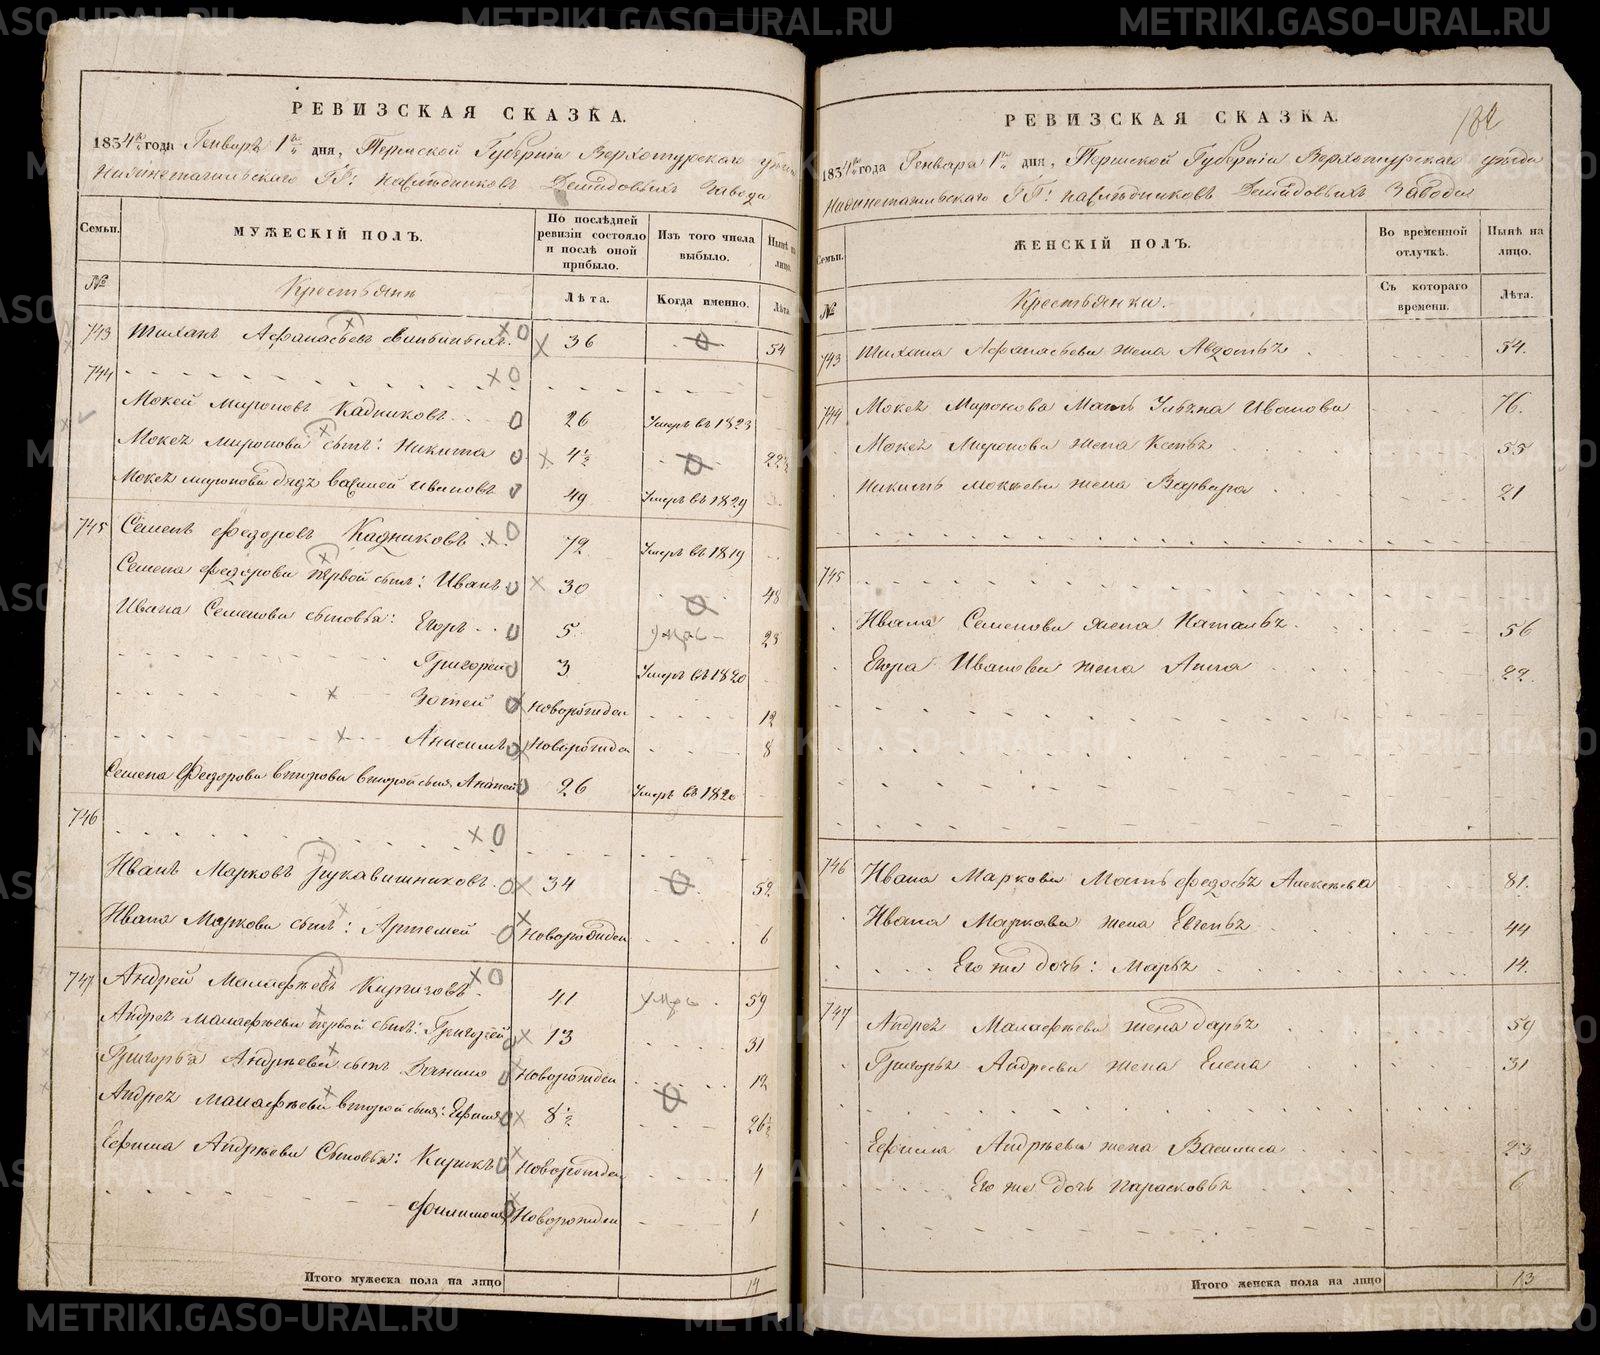 РЕВИЗСКАЯ СКАЗКА.
1834го года Генваря 1го дня, Пермской Губернiи Верхотурскаго уезда
Нижнетагильскаго ГГ: наследниковъ Демидовыхъ Завода
Семьи.
МУЖЕСКIЙ ПОЛЪ.
По послѣдней ревизiи состояло и послѣ оной прибыло.
Изъ того числа выбыло.
Нынѣ на лицо.
№
Крестьяне
Лѣта.
Когда именно.
Лѣта.
743 Тихонъ Афанасьевъ 36 54
744
Мокей Мироновъ Кадниковъ 26 Умеръ въ 1823
Мокея Миронова сынъ: Никита 4½ 22½
Мокея Миронова дядя Василей Ивановъ 49 Умеръ въ 1829
745 Семенъ Федоровъ Кадниковъ 72 Умеръ въ 1819
Семена Федорова первой сынъ: Иванъ 30 48
Ивана Семенова сыновья: Егоръ 5 умеръ 23
Григорей 3 Умеръ въ 1820
Зотей Новорожден 12
Анисимъ Новорожден 8
Семена Федорова второй сынъ Ананей 26 Умеръ въ 1820
746
Иванъ Марковъ Рукавишниковъ 34 52
Ивана Маркова сынъ: Артемей Новорожден 6
747 Андрей Малафѣевъ Киргизовъ 41 умеръ 59
Андрея Малафѣева первой сынъ: Григорей 13 31
Григорья Андрѣева сынъ Данило Новорожден 12
Андрея Малафѣева второй сынъ: Ефимъ 8½ 26½
Ефима Андрѣева Сыновья: Кирикъ Новорожден 4
Филимонъ Новорожден 1
Итого мужеска пола на лицо 14
182
РЕВИЗСКАЯ СКАЗКА.
1834го года Генваря 1го дня, Пермской Губернiи Верхотурскаго уезда
Нижнетагильскаго ГГ: наслѣдниковъ Демидовыхъ Завода
Семьи.
ЖЕНСКIЙ ПОЛЪ.
Во временной отлучкѣ.
Нынѣ на лицо.
№
Крестьянки.
Съ котораго времени.
Лѣта.
743 Тихона Афанасьева жена Авдотья 54.
744 Мокея Миронова Мать Ульяна Иванова 76.
Мокея Миронова жена 55
Никиты Мокѣева жена Варвара 21
745
Ивана Семенова жена Наталья 56
Егора Иванова жена Анна 22.
746 Ивана Маркова Мать Федосья Алексѣева 81.
Ивана Маркова жена Евгенья 44
Его же дочь: Марья 14.
747 Андрея Малафѣева жена Дарья 59
Григорья Андреева жена Елена 31
Ефима Андрѣева жена Василиса 23
Его же дочь Парасковья 6
Итого женска пола на лицо 13
METRIKI.GASO-URAL.RU